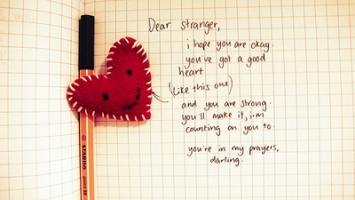 Dear stranger,
i hope you are okay.
you've got a good
heart
(like this one)
and you are strong.
you'll make it, i'm
counting on you to
you're in my prayers,
darling.
STABILO